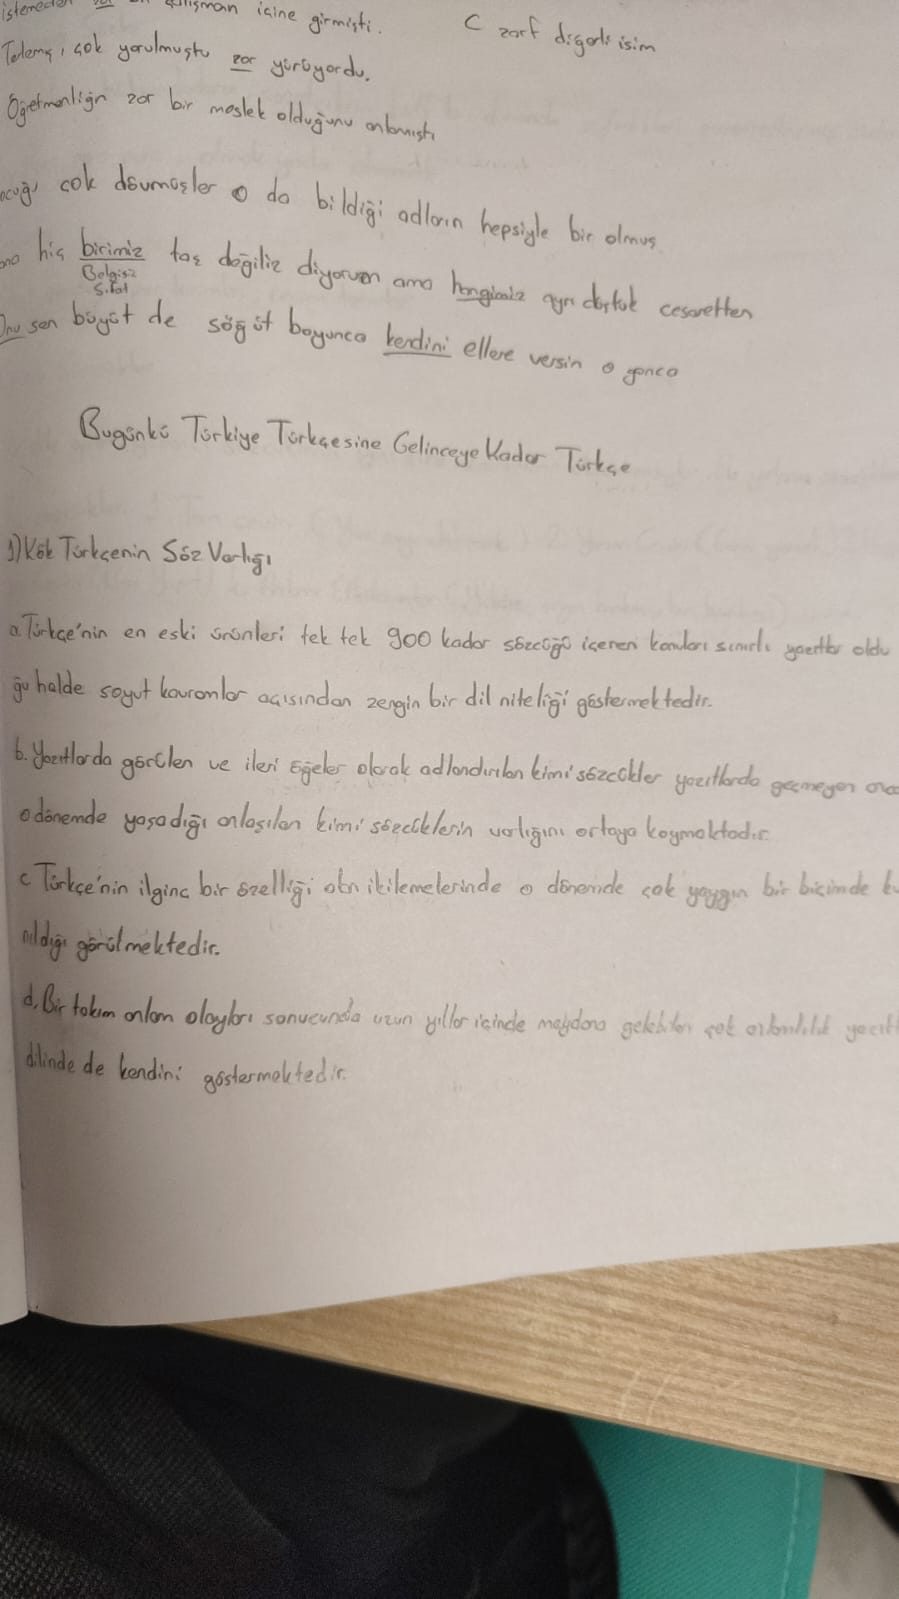 istemeden zor bir çalışman içine girmişti.
C zarf diğerleri isim
çok yorulmuştu zor yürüyordu.
Öğretmenliğin zor bir meslek olduğunu anlamıştı
çok dövmüşler o da bildiği adların hepsiyle bir olmuş
hiç birimiz taş değiliz diyorum ama hangimiz ayrı düştük cesaretten
Belgisiz
Sıfat
Onu sen büyüt de söğüt boyunca kendini ellere versin o gonca
Bugünkü Türkiye Türkçesine Gelinceye Kadar Türkçe
1) Kök Türkçenin Söz Varlığı
a. Türkçe'nin en eski ürünleri tek tek 900 kadar sözcüğü içeren konuları sınırlı yazıtlar oldu
ğu halde soyut kavramlar açısından zengin bir dil niteliği göstermektedir.
b. Yazıtlarda görülen ve ileri öğeler olarak adlandırılan kimi sözcükler yazıtlarda geçmeyen
o dönemde yaşadığı anlaşılan kimi sözcüklerin varlığını ortaya koymaktadır.
c Türkçe'nin ilginç bir özelliği olan ikilemelerinde o dönemde çok yaygın bir biçimde
nıldığı görülmektedir.
d. Bir takım anlam olayları sonucunda uzun yıllar içinde meydana gelebilen çok anlamlılık yazıt
dilinde de kendini göstermektedir.